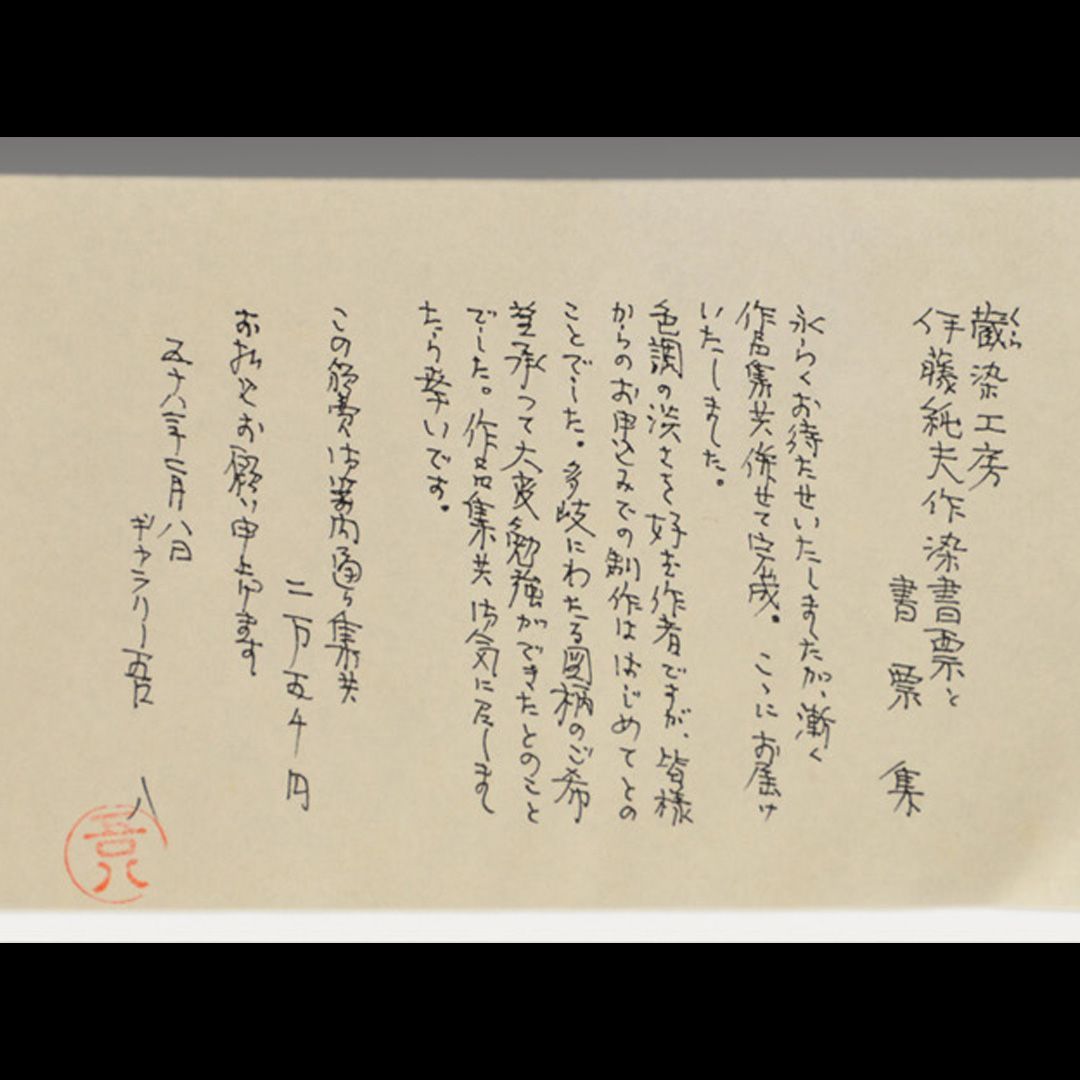 蔵染工房
くら
伊藤純夫作染書票と
書票集
永らくお待たせいたしましたが、漸く
作品集共併せて完成。こゝにお届け
いたしました。
色調の渋さを好む作者ですが、皆様
からのお申込みでの制作ははじめてとの
ことでした。多岐にわたる図柄のご希
望承って大変勉強ができたとのこと
でした。作品集共御気に召しまし
たら幸いです。
この頒費御案内通り集共
二万五千円
お払込お願い申上げます
五十八年二月八日
ギャラリー吾八
吾八